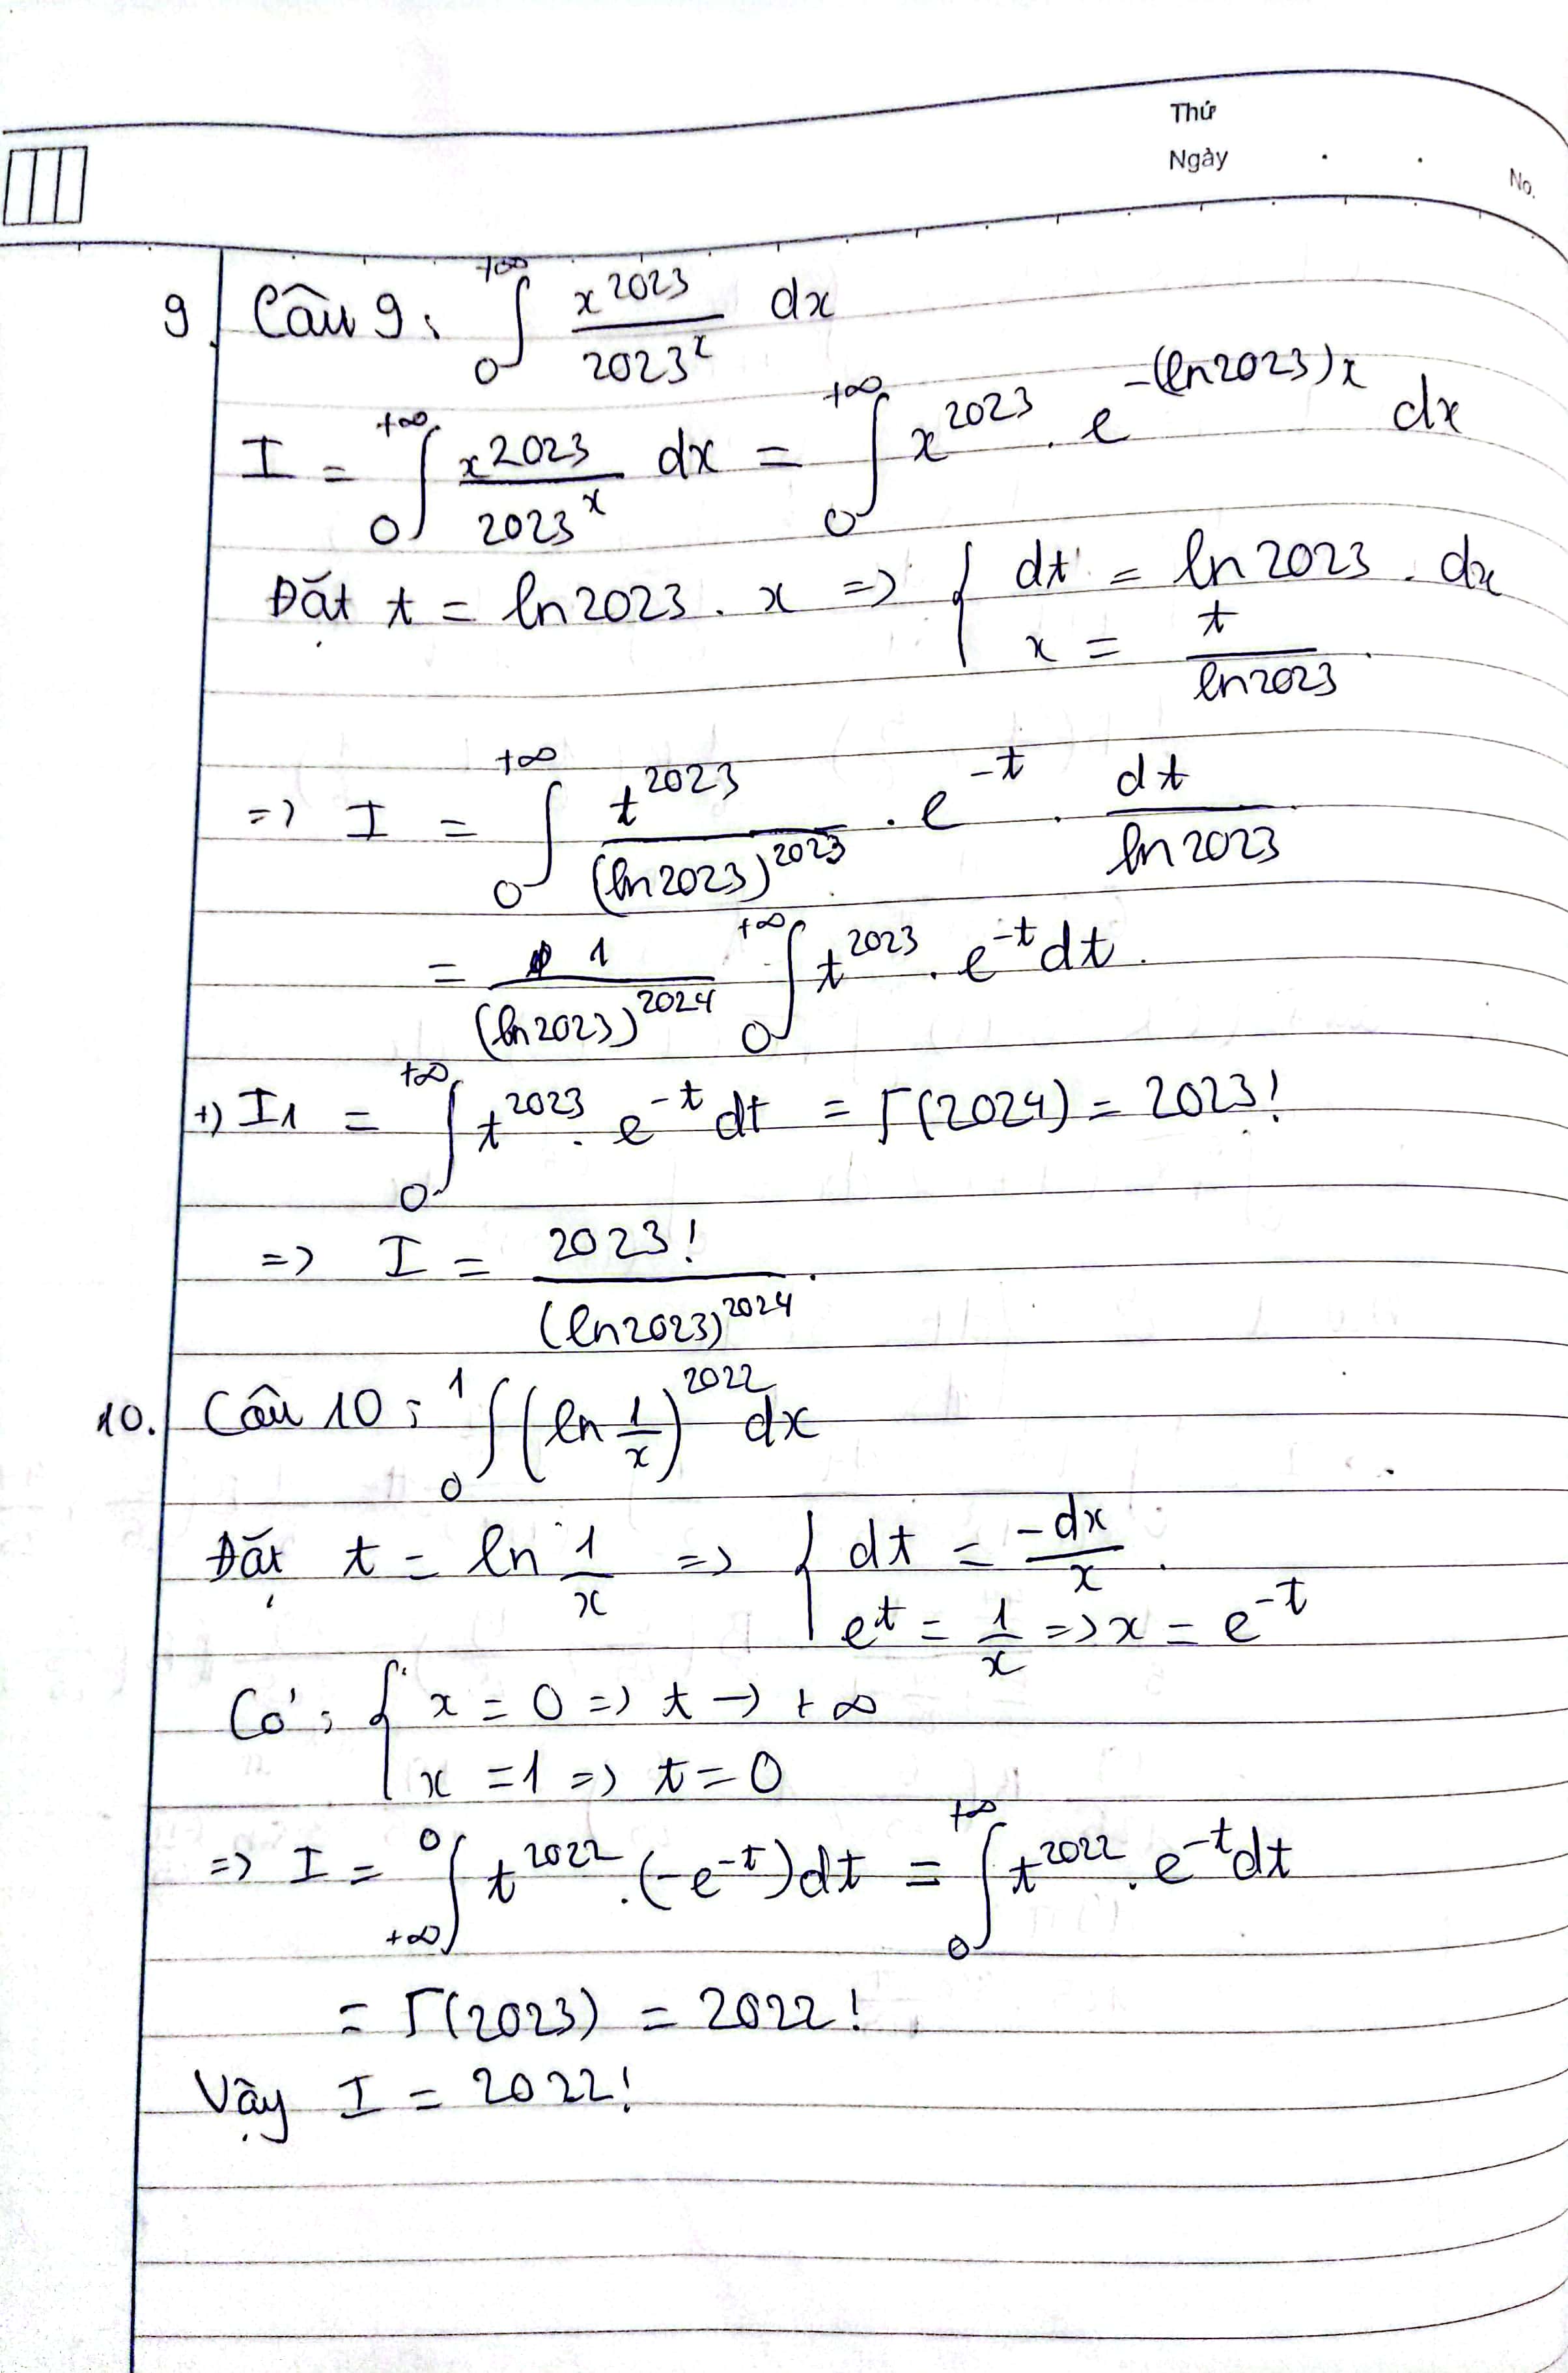 Thứ
Ngày . .
No.
9. Câu 9: ∫₀^{+∞} x^{2023}/2023^x dx
I = ∫₀^{+∞} x^{2023}/2023^x dx = ∫₀^{+∞} x^{2023} . e^{-(ln2023)x} dx
Đặt t = ln2023 . x => { dt = ln2023 . dx
x = t/ln2023 .
=> I = ∫₀^{+∞} t^{2023}/(ln2023)^{2023} . e^{-t} . dt/ln2023
= 1/(ln2023)^{2024} ∫₀^{+∞} t^{2023} . e^{-t} dt .
+) I1 = ∫₀^{+∞} t^{2023} . e^{-t} dt = Γ(2024) = 2023!
=> I = 2023!/(ln2023)^{2024} .
10. Câu 10: ∫₀^1 (ln 1/x)^{2022} dx
Đặt t = ln 1/x => { dt = -dx/x .
e^t = 1/x => x = e^{-t}
Có: { x = 0 => t -> +∞
x = 1 => t = 0
=> I = ∫_{+∞}^0 t^{2022} . (-e^{-t}) dt = ∫₀^{+∞} t^{2022} . e^{-t} dt
= Γ(2023) = 2022! .
Vậy I = 2022!